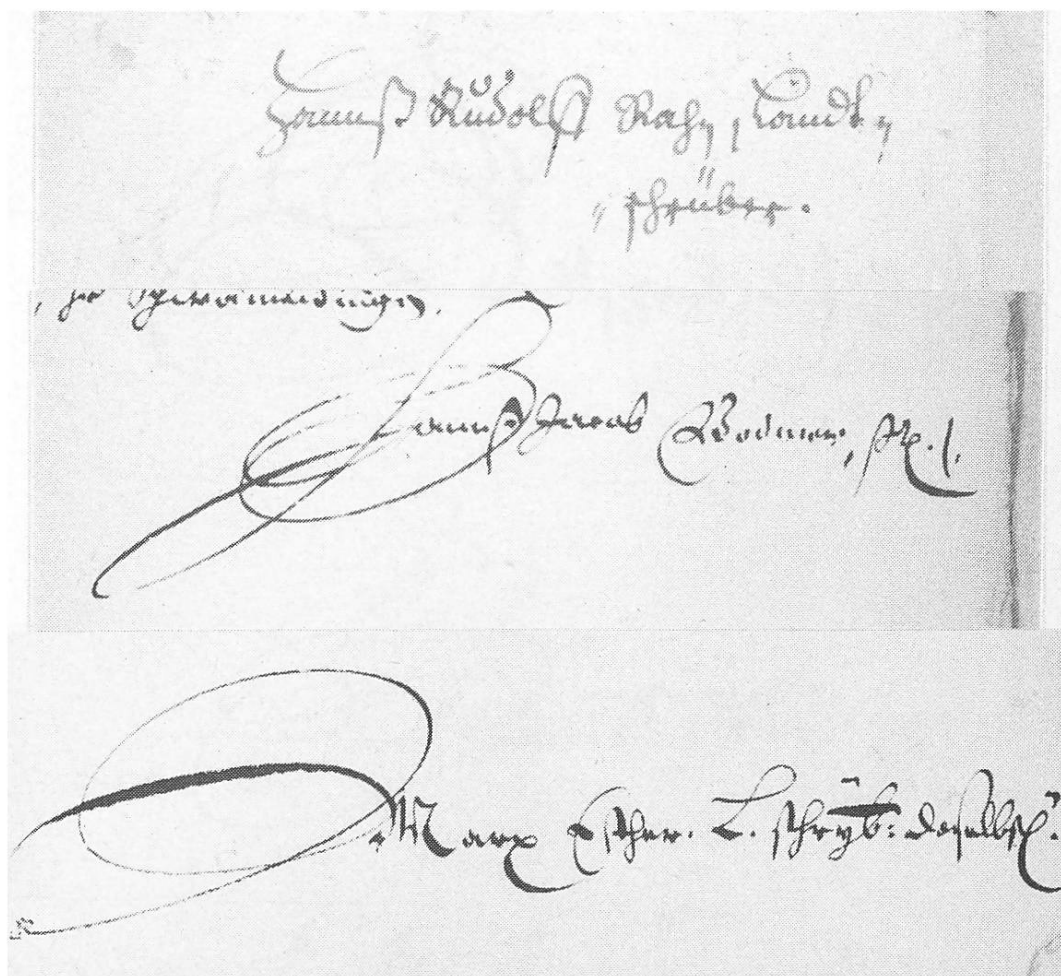 Hannß Rudolff Rahn, Landt„
„schryber.
Hannß Jacob Bodmer,
Marx Escher. L. schryb: daselbst.